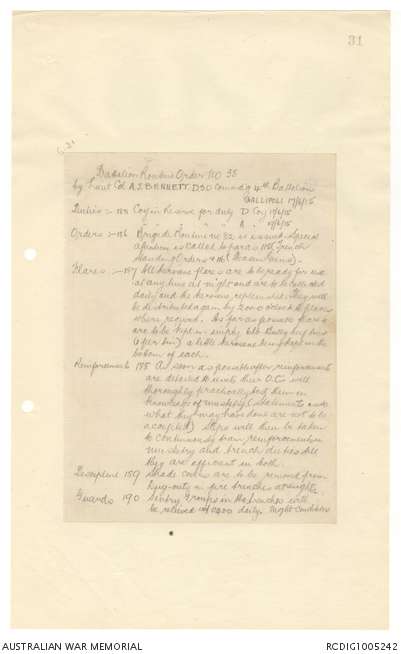 31
Battalion Routine Order No 38
by Lieut Col A.J. BENNETT. DSO Commdg 4th Battalion
GALLIPOLI 17/6/15
Duties :- 185 Coy in Reserve for duty D Coy 17/6/15
" " " A " 18/6/15
Orders :- 186 Brigade Routine No 82 is issued. Special
attention is called to paras 1158 (French
Standing Orders) & 1161 (Steam Guns).
Flares :- 187 All kerosene flares are to be ready for use
at any time at night and are to be collected
daily and the kerosene replenished. They will
be distributed again by 2000 o'clock to places
where required. As far as possible flares
are to be kept in empty 6lb Bully beef tins
(1 per tin) a little kerosene being kept in the
bottom of each.
Reinforcements 188 As soon as possible after reinforcements
are detailed to units their O.C's will
thoroughly practically test them in
knowledge of musketry (Statements as to
what they may have done are not to be
accepted) Steps will then be taken
to continuously train reinforcements in
musketry and trench duties till
they are efficient in both.
Discipline 189 Shade cover are to be removed from
Dug-outs in fire trenches at night.
Guards 190 Sentry Groups in the trenches will
be relieved at 0800 daily. Night Conditions
AUSTRALIAN WAR MEMORIAL
RCDIG1005242